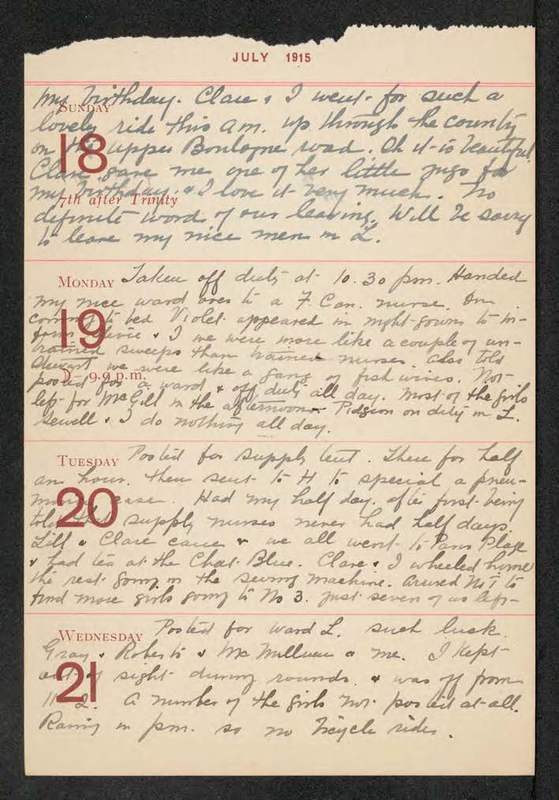 JULY 1915
SUNDAY
18
7th after Trinity
My birthday. Clare & I went for such a
lovely ride this a.m. up through the country
on the upper Boulogne road. Oh it is beautiful.
Clare gave me one of her little jugs for
my birthday & I love it very much. No
definite word of our leaving. Will be sorry
to leave my nice men in L.
MONDAY
19
9.9 p.m.
Taken off duty at 10.30 pm. Handed
my nice ward over to a F. Can. nurse. On
coming to bed Violet appeared in night gown to in-
form & I we were more like a couple of un-
trained sweeps than trained nurses. Also told
we were like a gang of fish wives. Not
posted for a ward & off duty all day. Most of the girls
left for McGill in the afternoon. on duty in L.
Sewell & I do nothing all day.
TUESDAY
20
Posted for supply tent. There for half
an hour. Then sent to H to special a pneu-
monia case. Had my half day, after first being
told supply nurses never had half days.
Lill & Clare came & we all went to Paris Plage
& had tea at the Chat Bleu. Clare & I wheeled home
the rest going in the sewing machine. to
find more girls going to No 3. Just seven of us left
WEDNESDAY
21
Posted for ward L. such luck.
Gray & Roberts & McMillan & me. I kept
out of sight during rounds & was off from
11-2. A number of the girls not posted at all.
Rainy in p.m. so no bicycle rides.